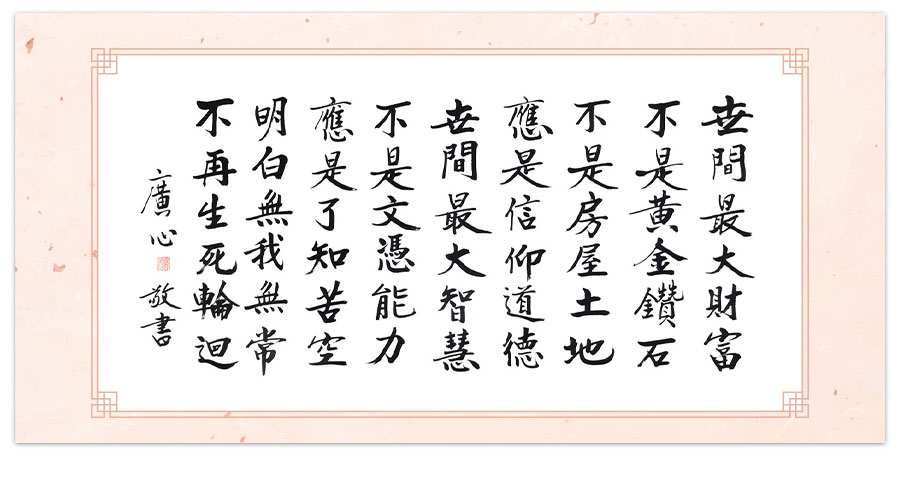 世間最大財富
不是黃金鑽石
不是房屋土地
應是信仰道德
世間最大智慧
不是文憑能力
應是了知苦空
明白無我無常
不再生死輪迴
廣心 敬書